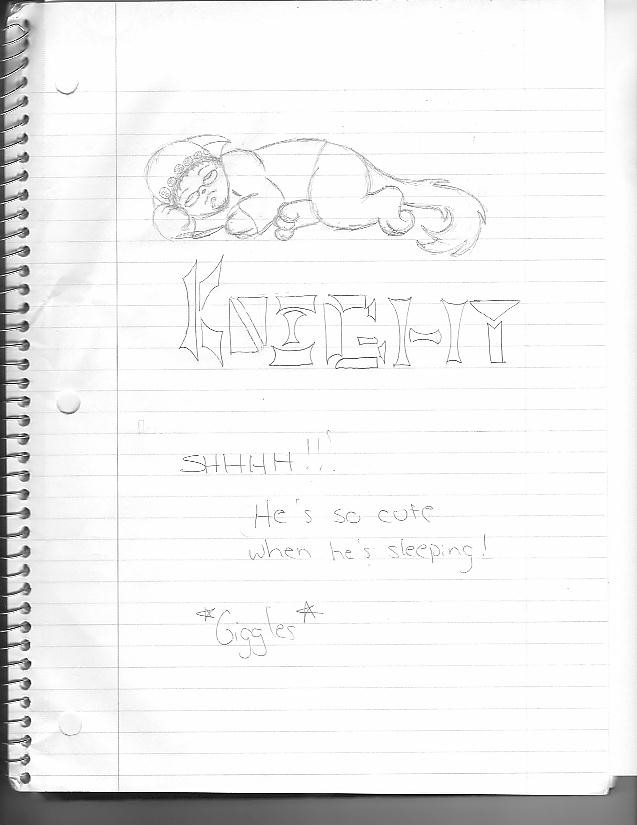 KNIGHT
SHHHH!!!
He's so cute
when he's sleeping!
*Giggles*